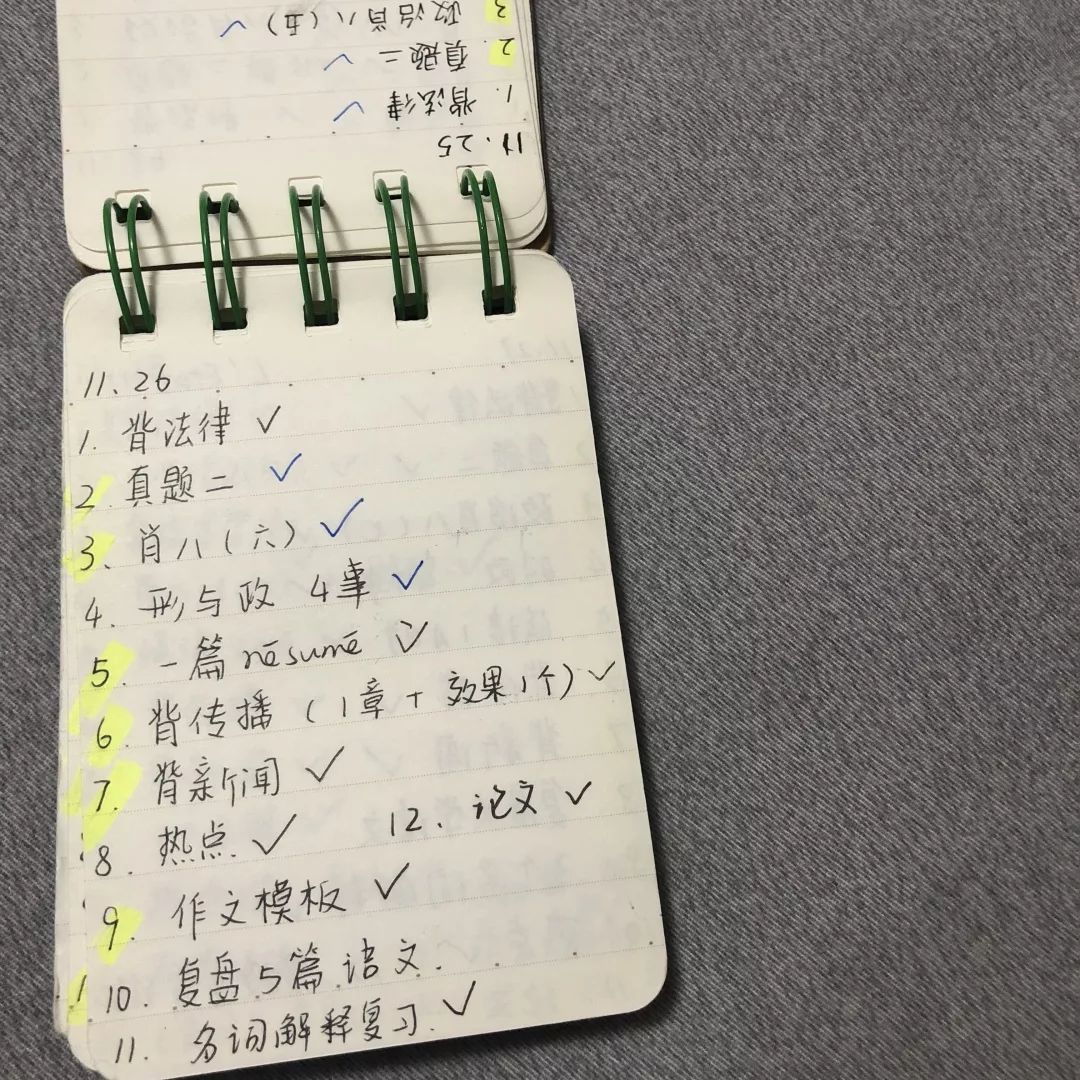 3 政治肖八(五) ✓
2. 真题二 ✓
1. 背法律 ✓
11.25
11、26
1. 背法律 ✓
2. 真题二 ✓
3、肖八(六) ✓
4. 形与政 4事 ✓
5. 一篇 résumé ✓
6. 背传播 (1章+效果1个) ✓
7. 背新闻 ✓
8. 热点. ✓ 12、论文 ✓
9. 作文模板 ✓
10. 复盘5篇语文.
11. 名词解释复习. ✓